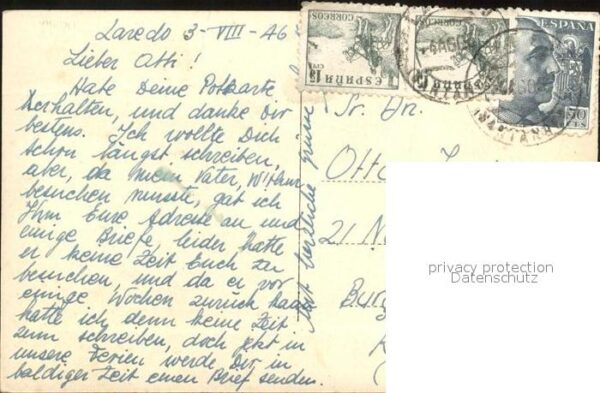 Laredo 3-VIII-46
Lieber Otti!
Habe Deine Postkarte
erhalten, und danke Dir
bestens. Ich wollte Dich
schon längst schreiben,
aber, da mein Vater,
besuchen musste, gab ich
Ihm Eure Adresse an und
einige Briefe, leider hatte
er keine Zeit Euch zu
besuchen, und da er vor
einige Wochen zurück kam
hatte ich denn keine Zeit
zum schreiben, doch jetzt in
unsere Ferien werde Dir in
baldiger Zeit einen Brief senden.
CORREOS
ESPAÑA
15 CTS
CORREOS
ESPAÑA
15
ESPAÑA
50
CTS
Sr. Dn.
Otto
21 N
privacy protection
Datenschutz